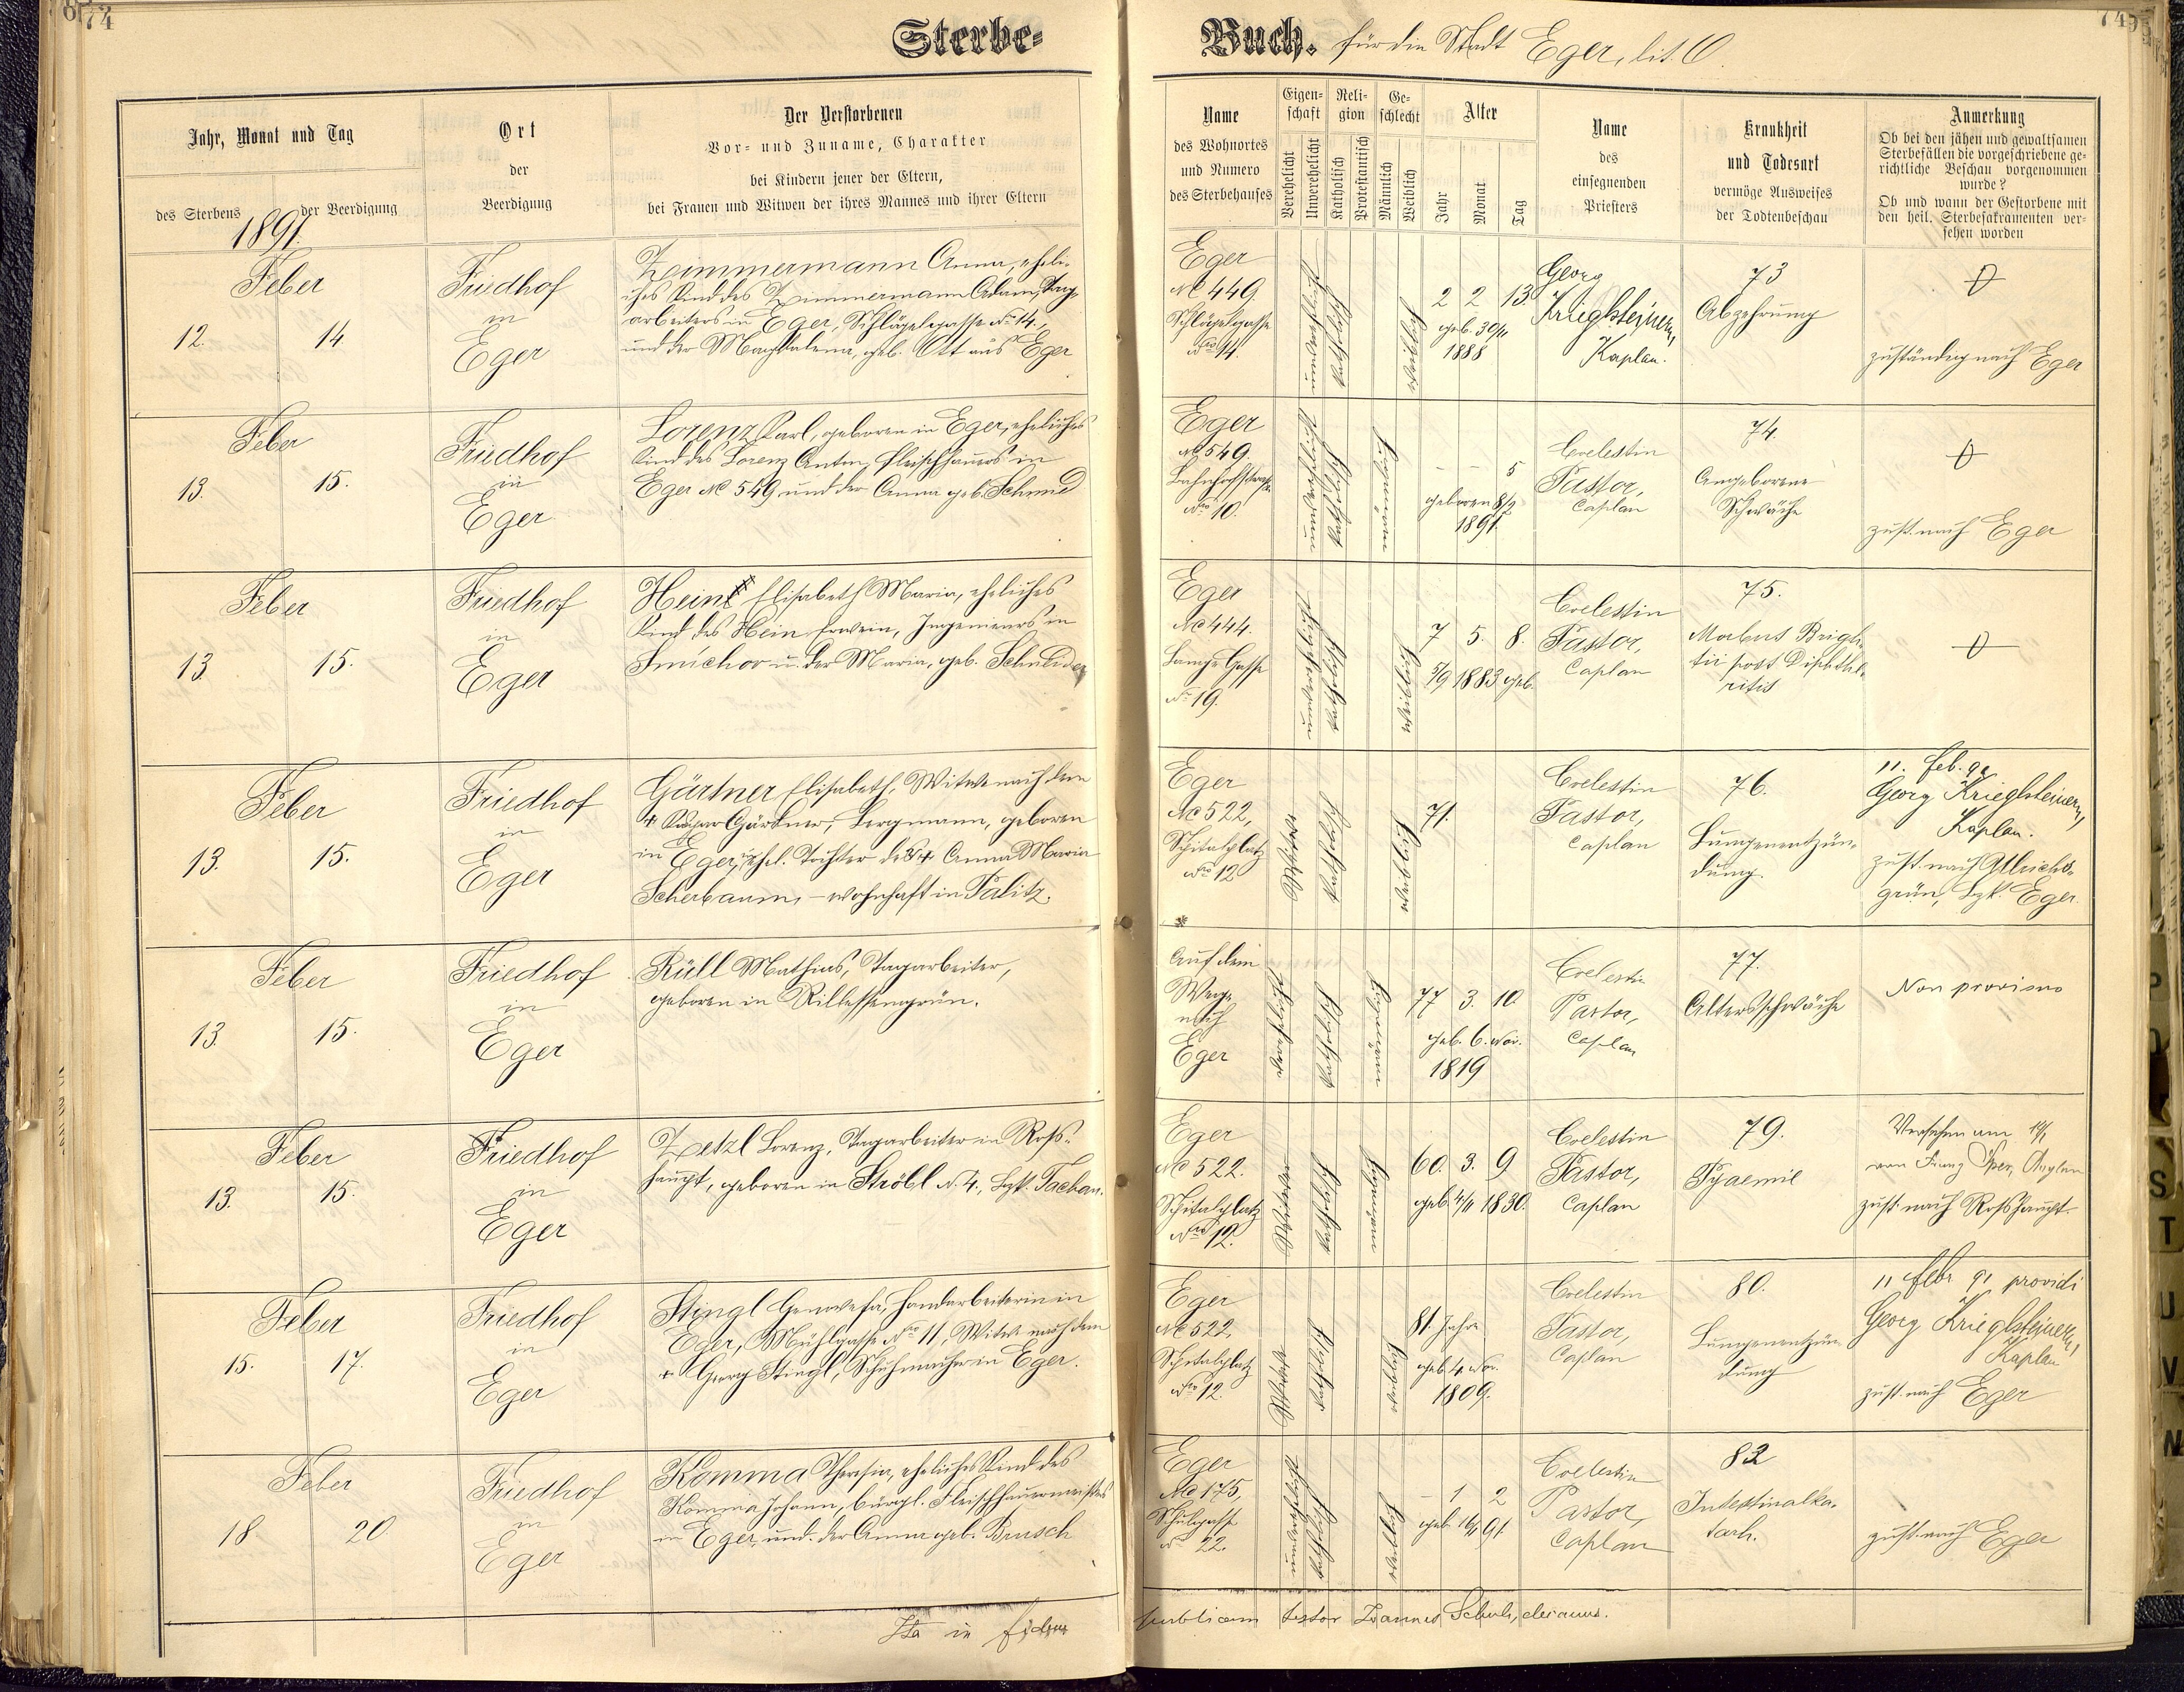 74
Sterbe-
Buch. für die Stadt Eger, lit. O.
74
Jahr, Monat und Tag
des Sterbens
der Beerdigung
1891.
Ort
der
Beerdigung
Der Verstorbenen
Vor- und Zuname, Charakter
bei Kindern jener der Eltern,
bei Frauen und Witwen der ihres Mannes und ihrer Eltern
Name
des Wohnortes
und Numero
des Sterbehauses
Eigen-
schaft
Verehelicht
Unverehelicht
Reli-
gion
Katholisch
Protestantisch
Ge-
schlecht
Männlich
Weiblich
Alter
Jahr
Monat
Tag
Name
des
einsegnenden
Priesters
Krankheit
und Todesart
vermöge Ausweises
der Todtenbeschau
Anmerkung
Ob bei den jähen und gewaltsamen
Sterbefällen die vorgeschriebene ge-
richtliche Beschau vorgenommen
wurde?
Ob und wann der Gestorbene mit
den heil. Sterbesakramenten ver-
sehen worden
Feber
12. 14
Friedhof
in
Eger
Zimmermann Anna, eheli-
ches Kind des Zimmermann Adam, Tag-
arbeiters in Eger, Schlögelgasse No 14,
und der Magdalena, geb. Ott aus Eger
Eger
NC 449
Schlögelgasse
Nro 14.
unverehelicht
katholisch
weiblich
2 2 13
geb. 30/11
1888
Georg
Krieglsteiner,
Kaplan.
73
Abzehrung
zuständig nach Eger
Feber
13. 15.
Friedhof
in
Eger
Lorenz Karl, geboren in Eger, eheliches
Kind des Lorenz Anton, Fleischhauers in
Eger NC 549 und der Anna geb. Schmid
Eger
NC 549.
Bahnhofstraße
Nro 10.
katholisch
männlich
- - 5
geboren 8/2
1891.
Coelestin
Pastor,
Caplan
74.
Angeborene
Schwäche
zust. nach Eger
Feber
13. 15.
Friedhof
in
Eger
Hein Elisabeth Maria, eheliches
Kind des Hein Erwein, Ingenieurs in
Smíchov u. der Maria, geb. Schuldes
Eger
NC 444.
Lange Gasse
No 19.
katholisch
weiblich
7 5. 8.
5/9 1883 geb.
Coelestin
Pastor,
Caplan
75.
Morbus Brigh-
tii post Diphthe-
ritis
Feber
13. 15.
Friedhof
in
Eger
Gärtner Elisabeth, Witwe nach dem
+ Kaspar Gärtner, Bergmann, geboren
in Eger, ehel. Tochter der + Anna Maria
Scherbaum, - wohnhaft in Palitz.
Eger
NC 522,
Spitalplatz
Nro 12
Witwe
katholisch
weiblich
71.
Coelestin
Pastor,
Caplan
76.
Lungenentzün-
dung.
11. Feb. 91
Georg Krieglsteiner,
Kaplan.
zust. nach Ullrichs-
grün, Bzk. Eger.
Feber
13. 15.
Friedhof
in
Eger
Rüll Mathias, Tagarbeiter,
geboren in Rillessengrün.
Auf dem
Wege
nach
Eger
verehelicht
katholisch
männlich
77 3. 10.
geb. 6. Nov.
1819
Coelestin
Pastor,
Caplan
77.
Altersschwäche
Non provisus
Feber
13. 15.
Friedhof
in
Eger
Zetzl Lorenz, Tagarbeiter in Roß-
haupt, geboren in Ströbl N. 4., Bzk. Tachau.
Eger
NC 522.
Spitalplatz
Nro 12.
Witwer
katholisch
männlich
60. 3. 9
geb. 4/11 1830.
Coelestin
Pastor,
Caplan
79.
Pyaemie
Versehen am
von Franz
zust. nach Roßhaupt
Feber
15. 17.
Friedhof
in
Eger
Stingl Genovefa, Handarbeiterin in
Eger, Mühlgasse Nro 11, Witwe nach dem
+ Georg Stingl, Schuhmacher in Eger.
Eger
NC 522,
Spitalplatz
Nro 12.
Witwe
katholisch
weiblich
81. Jahre
geb. 4. Nov.
1809.
Coelestin
Pastor,
Caplan
80.
Lungenentzün-
dung
11 Febr 91 providi
Georg Krieglsteiner,
Kaplan
zust. nach Eger
Feber
18. 20
Friedhof
in
Eger
Komma Theresia, eheliches Kind des
Komma Johann, bürgl. Fleischhauermeisters
in Eger, und der Anna geb. Brusch
Eger
NC 175,
Schulgasse
No 22.
unverehelicht
katholisch
weiblich
- 1 2
geb. 16/1 91
Coelestin
Pastor,
Caplan
82
Intestinalka-
tarh.
zust. nach Eger
Ita in fidem
publicam testor Joannes Schuh, decanus.